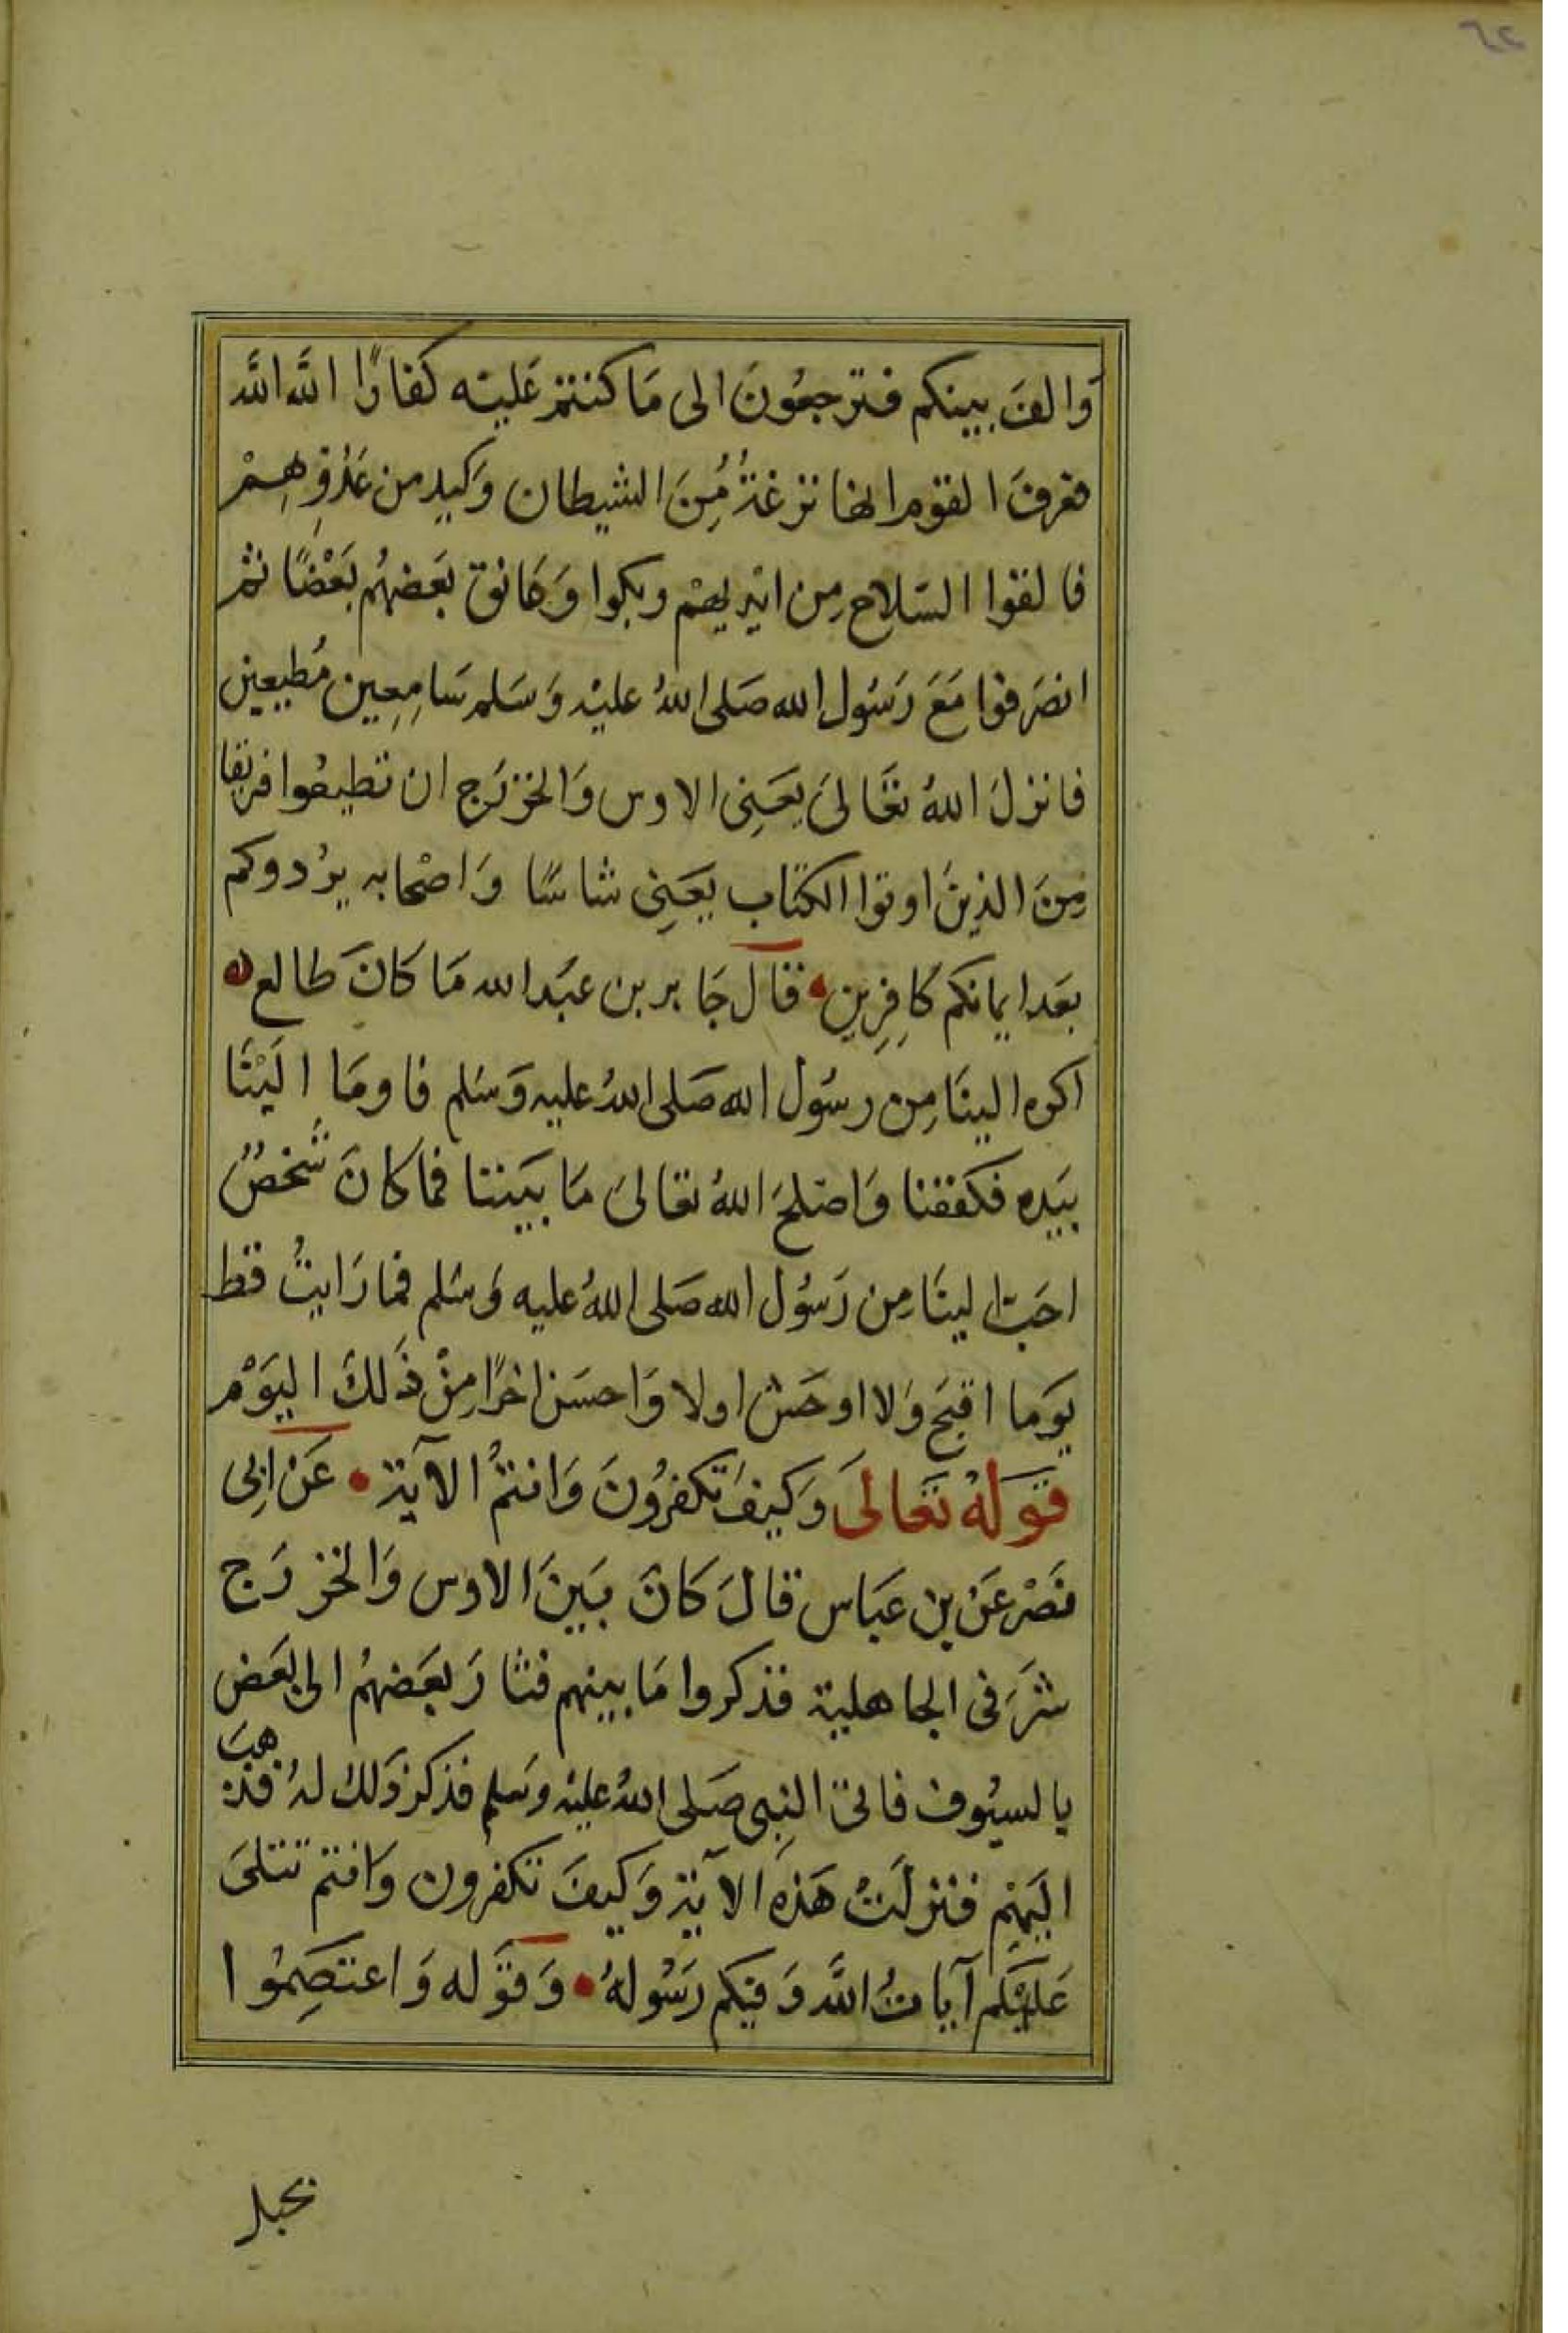 ٦٢
وَالفَ بينكم فترجعُونَ الى مَا كنتم عَليْه كفارًا اللَّه اللَّه
فعَرفَ القوم انها نزغةٌ مِنَ الشيطان وَكيد من عَدُوِّهِمْ
فالقوا السَلاح مِن ايْديهمْ وبكوا وَعَانق بَعضهُم بَعْضًا ثم
انصَرفوا مَعَ رَسُول الله صَلى اللهُ عليْه وَسَلم سَامِعِين مُطيعين
فانزلَ اللهُ تعَالىَ يعَنِى الاوس وَالخزرَج ان تطيعُوا فريقا
مِنَ الذينَ اوتوا الكتاب يعَنِى شاسًا وَاصْحابه يرُدوكم
بعَد ايمانكم كافِرِين قالَ جَابر بن عبَد الله مَا كانَ طالع
اكره الينَا مِن رسُول الله صَلى اللهُ عليه وَسَلم فاومَا اليْنَا
بيَده فكففنا وَاصْلحَ اللهُ تعَالىَ مَا بيَننا فما كانَ شخصٌ
احَبّ الينَا مِن رَسُول الله صَلى اللهُ عليه وَسَلم فما رَايتُ قط
يَوما اقبَح وَلا اوحَش اولا وَاحسَن اخرًا مِنْ ذَلكَ اليَوْم
قوَلهُ تعَالىَ وَكيفَ تكفرُونَ وَانتمُ الآية عَنْ ابِى
نصْر عَن بن عَباس قالَ كانَ بَينَ الاوس وَالخزرَج
شرَ فى الجاهلية فذكروا مَا بينهم فثارَ بعَضهُم الى بعَض
بالسيُوف فاتى النبى صَلى اللهُ عليْه وسَلم فذكر ذَلك لهُ فذهبَ
اليَهْم فنزلَتْ هَذه الآية وَكيفَ تكفرون وَانتم تتلىَ
عَليْكم آيَاتُ اللَّه وَفيكم رَسُولهُ وَقوَله وَاعتصِمُوا
بحبل